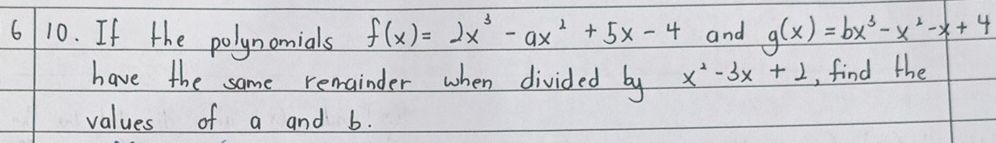 6 10. If the polynomials f(x) = 2x³ - ax² + 5x - 4 and g(x) = bx³ - x² - x + 4
have the same remainder when divided by x² - 3x + 2, find the
values of a and b.